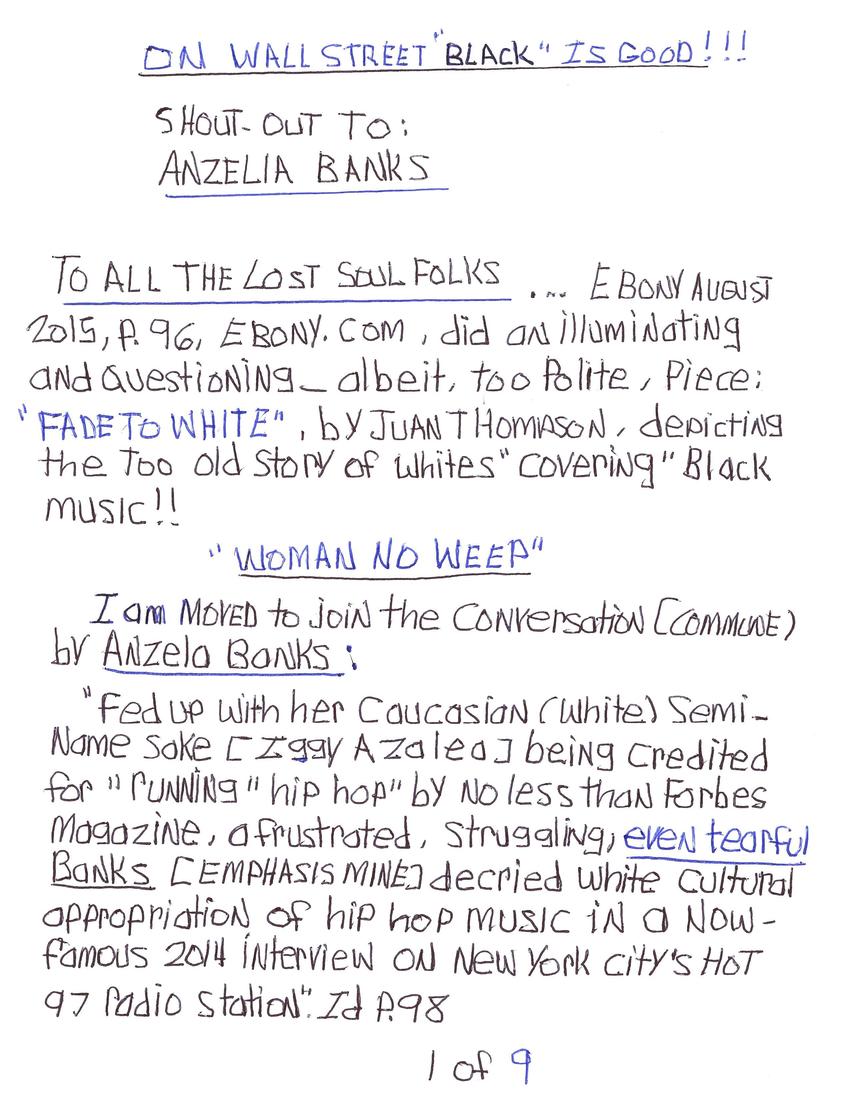 ON WALL STREET "BLACK" IS GOOD!!!
SHOUT-OUT TO:
ANZELIA BANKS
TO ALL THE LOST SOUL FOLKS .... EBONY AUGUST
2015, P. 96, EBONY.COM, did an illuminating
and QuestioNiNg _ albeit, too Polite, Piece:
"FADE TO WHITE", by JUAN THOMPSON, depicting
the Too old Story of whites "covering" Black
music!!
"WOMAN NO WEEP"
I am MOVED to join the Conversation [COMMUNE)
by Anzela Banks:
"Fed up with her Caucasian (White) Semi-
Name sake [Iggy Azalea] being credited
for "running "hip hop" by No less than Forbes
Magazine, a frustrated, struggling, even tearful
Banks [EMPHASIS MINE] decried white cultural
appropriation of hip hop music in a Now-
famous 2014 interview on New York City's HOT
97 radio station". Id P.98
1 of 9